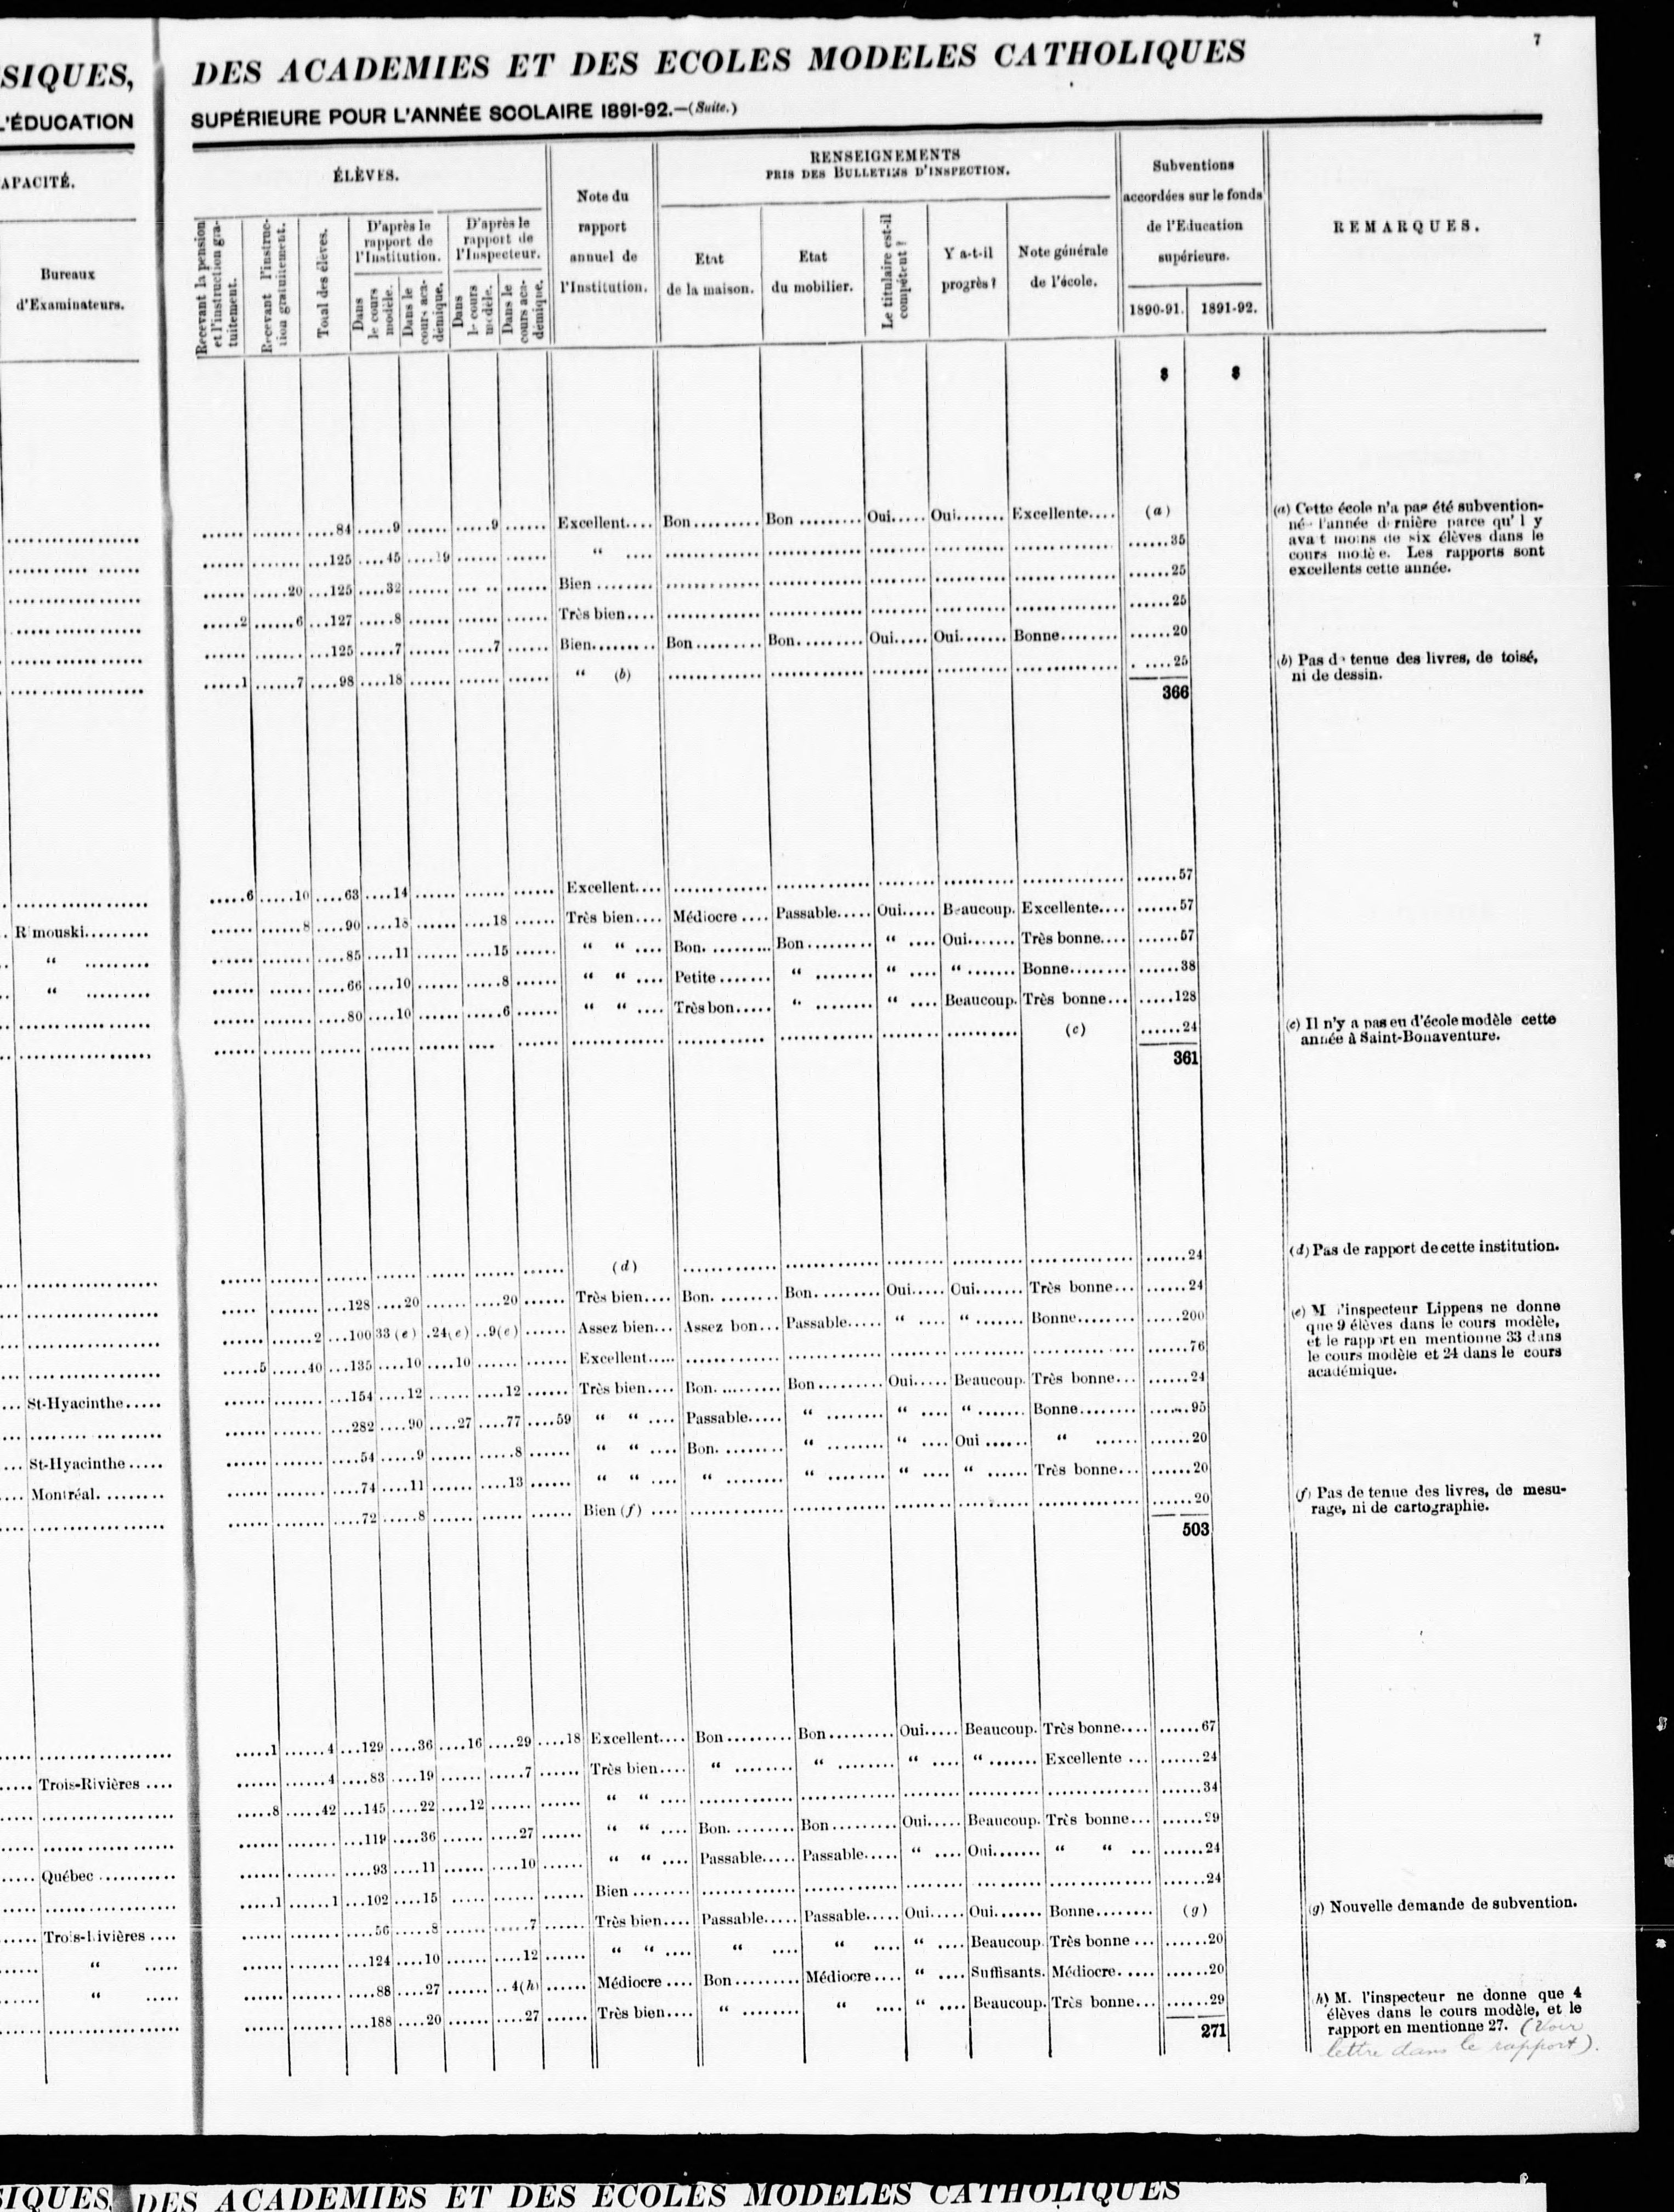 7
SIQUES, DES ACADEMIES ET DES ECOLES MODELES CATHOLIQUES
L'ÉDUCATION SUPÉRIEURE POUR L'ANNÉE SCOLAIRE 1891-92.—(Suite.)
APACITÉ.
Bureaux
d'Examinateurs.
ÉLÈVES.
Recevant la pension
et l'instruction gra-
tuitement.
Recevant l'instruc-
tion gratuitement.
Total des élèves.
D'après le
rapport de
l'Institution.
Dans
le cours
modèle.
Dans le
cours aca-
démique.
D'après le
rapport de
l'Inspecteur.
Dans
le cours
modèle.
Dans le
cours aca-
démique.
Note du
rapport
annuel de
l'Institution.
RENSEIGNEMENTS
PRIS DES BULLETINS D'INSPECTION.
Etat
de la maison.
Etat
du mobilier.
Le titulaire est-il
compétent?
Y a-t-il
progrès?
Note générale
de l'école.
Subventions
accordées sur le fonds
de l'Education
supérieure.
1890-91. 1891-92.
REMARQUES.
$ $
84 9 9 Excellent.... Bon......... Bon ......... Oui..... Oui....... Excellente.... (a)
125 45 19 “ .... 35
20 125 32 Bien ........ 25
2 6 127 8 Très bien.... 25
125 7 7 Bien........ Bon......... Bon......... Oui..... Oui....... Bonne........ 20
1 7 98 18 “ (b) 25
366
(a) Cette école n'a pas été subvention-
né l'année d rnière parce qu' l y
ava t moins de six élèves dans le
cours modèe. Les rapports sont
excellents cette année.
(b) Pas d tenue des livres, de toisé,
ni de dessin.
6 10 63 14 Excellent.... 57
R mouski......... 8 90 18 18 Très bien.... Médiocre .... Passable..... Oui..... Beaucoup. Excellente.... 57
“ ......... 85 11 15 “ “ .... Bon. ......... Bon......... “ .... Oui....... Très bonne.... 57
“ ......... 66 10 8 “ “ .... Petite....... “ ........ “ .... “ ....... Bonne........ 38
80 10 6 “ “ .... Très bon..... “ ........ “ .... Beaucoup. Très bonne... 128
(c) 24
361
(c) Il n'y a pas eu d'école modèle cette
année à Saint-Bonaventure.
(d) 24
128 20 20 Très bien.... Bon. ........ Bon......... Oui..... Oui....... Très bonne... 24
2 100 33 (e) 24(e) 9(e) Assez bien... Assez bon... Passable..... “ .... “ ....... Bonne........ 200
5 40 135 10 10 Excellent..... 76
St-Hyacinthe..... 154 12 12 Très bien.... Bon. ........ Bon......... Oui..... Beaucoup. Très bonne... 24
282 90 27 77 59 “ “ .... Passable..... “ ........ “ .... “ ....... Bonne........ 95
St-Hyacinthe..... 54 9 8 “ “ .... Bon. ........ “ ........ “ .... Oui ...... “ ...... 20
Montréal......... 74 11 13 “ “ .... “ ........ “ ........ “ .... “ ...... Très bonne... 20
72 8 Bien (f) .... 20
503
(d) Pas de rapport de cette institution.
(e) M l'inspecteur Lippens ne donne
que 9 élèves dans le cours modèle,
et le rapport en mentionne 33 dans
le cours modèle et 24 dans le cours
académique.
(f) Pas de tenue des livres, de mesu-
rage, ni de cartographie.
1 4 129 36 16 29 18 Excellent.... Bon......... Bon......... Oui..... Beaucoup. Très bonne.... 67
Trois-Rivières .... 4 83 19 7 Très bien.... “ ........ “ ........ “ .... “ ....... Excellente ... 24
8 42 145 22 12 “ “ .... 34
119 36 27 “ “ .... Bon. ........ Bon......... Oui..... Beaucoup. Très bonne... 29
Québec........... 93 11 10 “ “ .... Passable..... Passable..... “ .... Oui....... “ “ ... 24
1 1 102 15 Bien ......... 24
Trois-Rivières .... 56 8 7 Très bien.... Passable..... Passable..... Oui..... Oui....... Bonne........ (g)
“ ..... 124 10 12 “ “ .... “ .... “ .... “ .... Beaucoup. Très bonne ... 20
“ ..... 88 27 4(h) Médiocre .... Bon......... Médiocre.... “ .... Suffisants. Médiocre..... 20
188 20 27 Très bien.... “ ........ “ .... “ .... Beaucoup. Très bonne... 29
271
(g) Nouvelle demande de subvention.
(h) M. l'inspecteur ne donne que 4
élèves dans le cours modèle, et le
rapport en mentionne 27. (Voir
lettre dans le rapport).
SIQUES, DES ACADEMIES ET DES ECOLES MODELES CATHOLIQUES